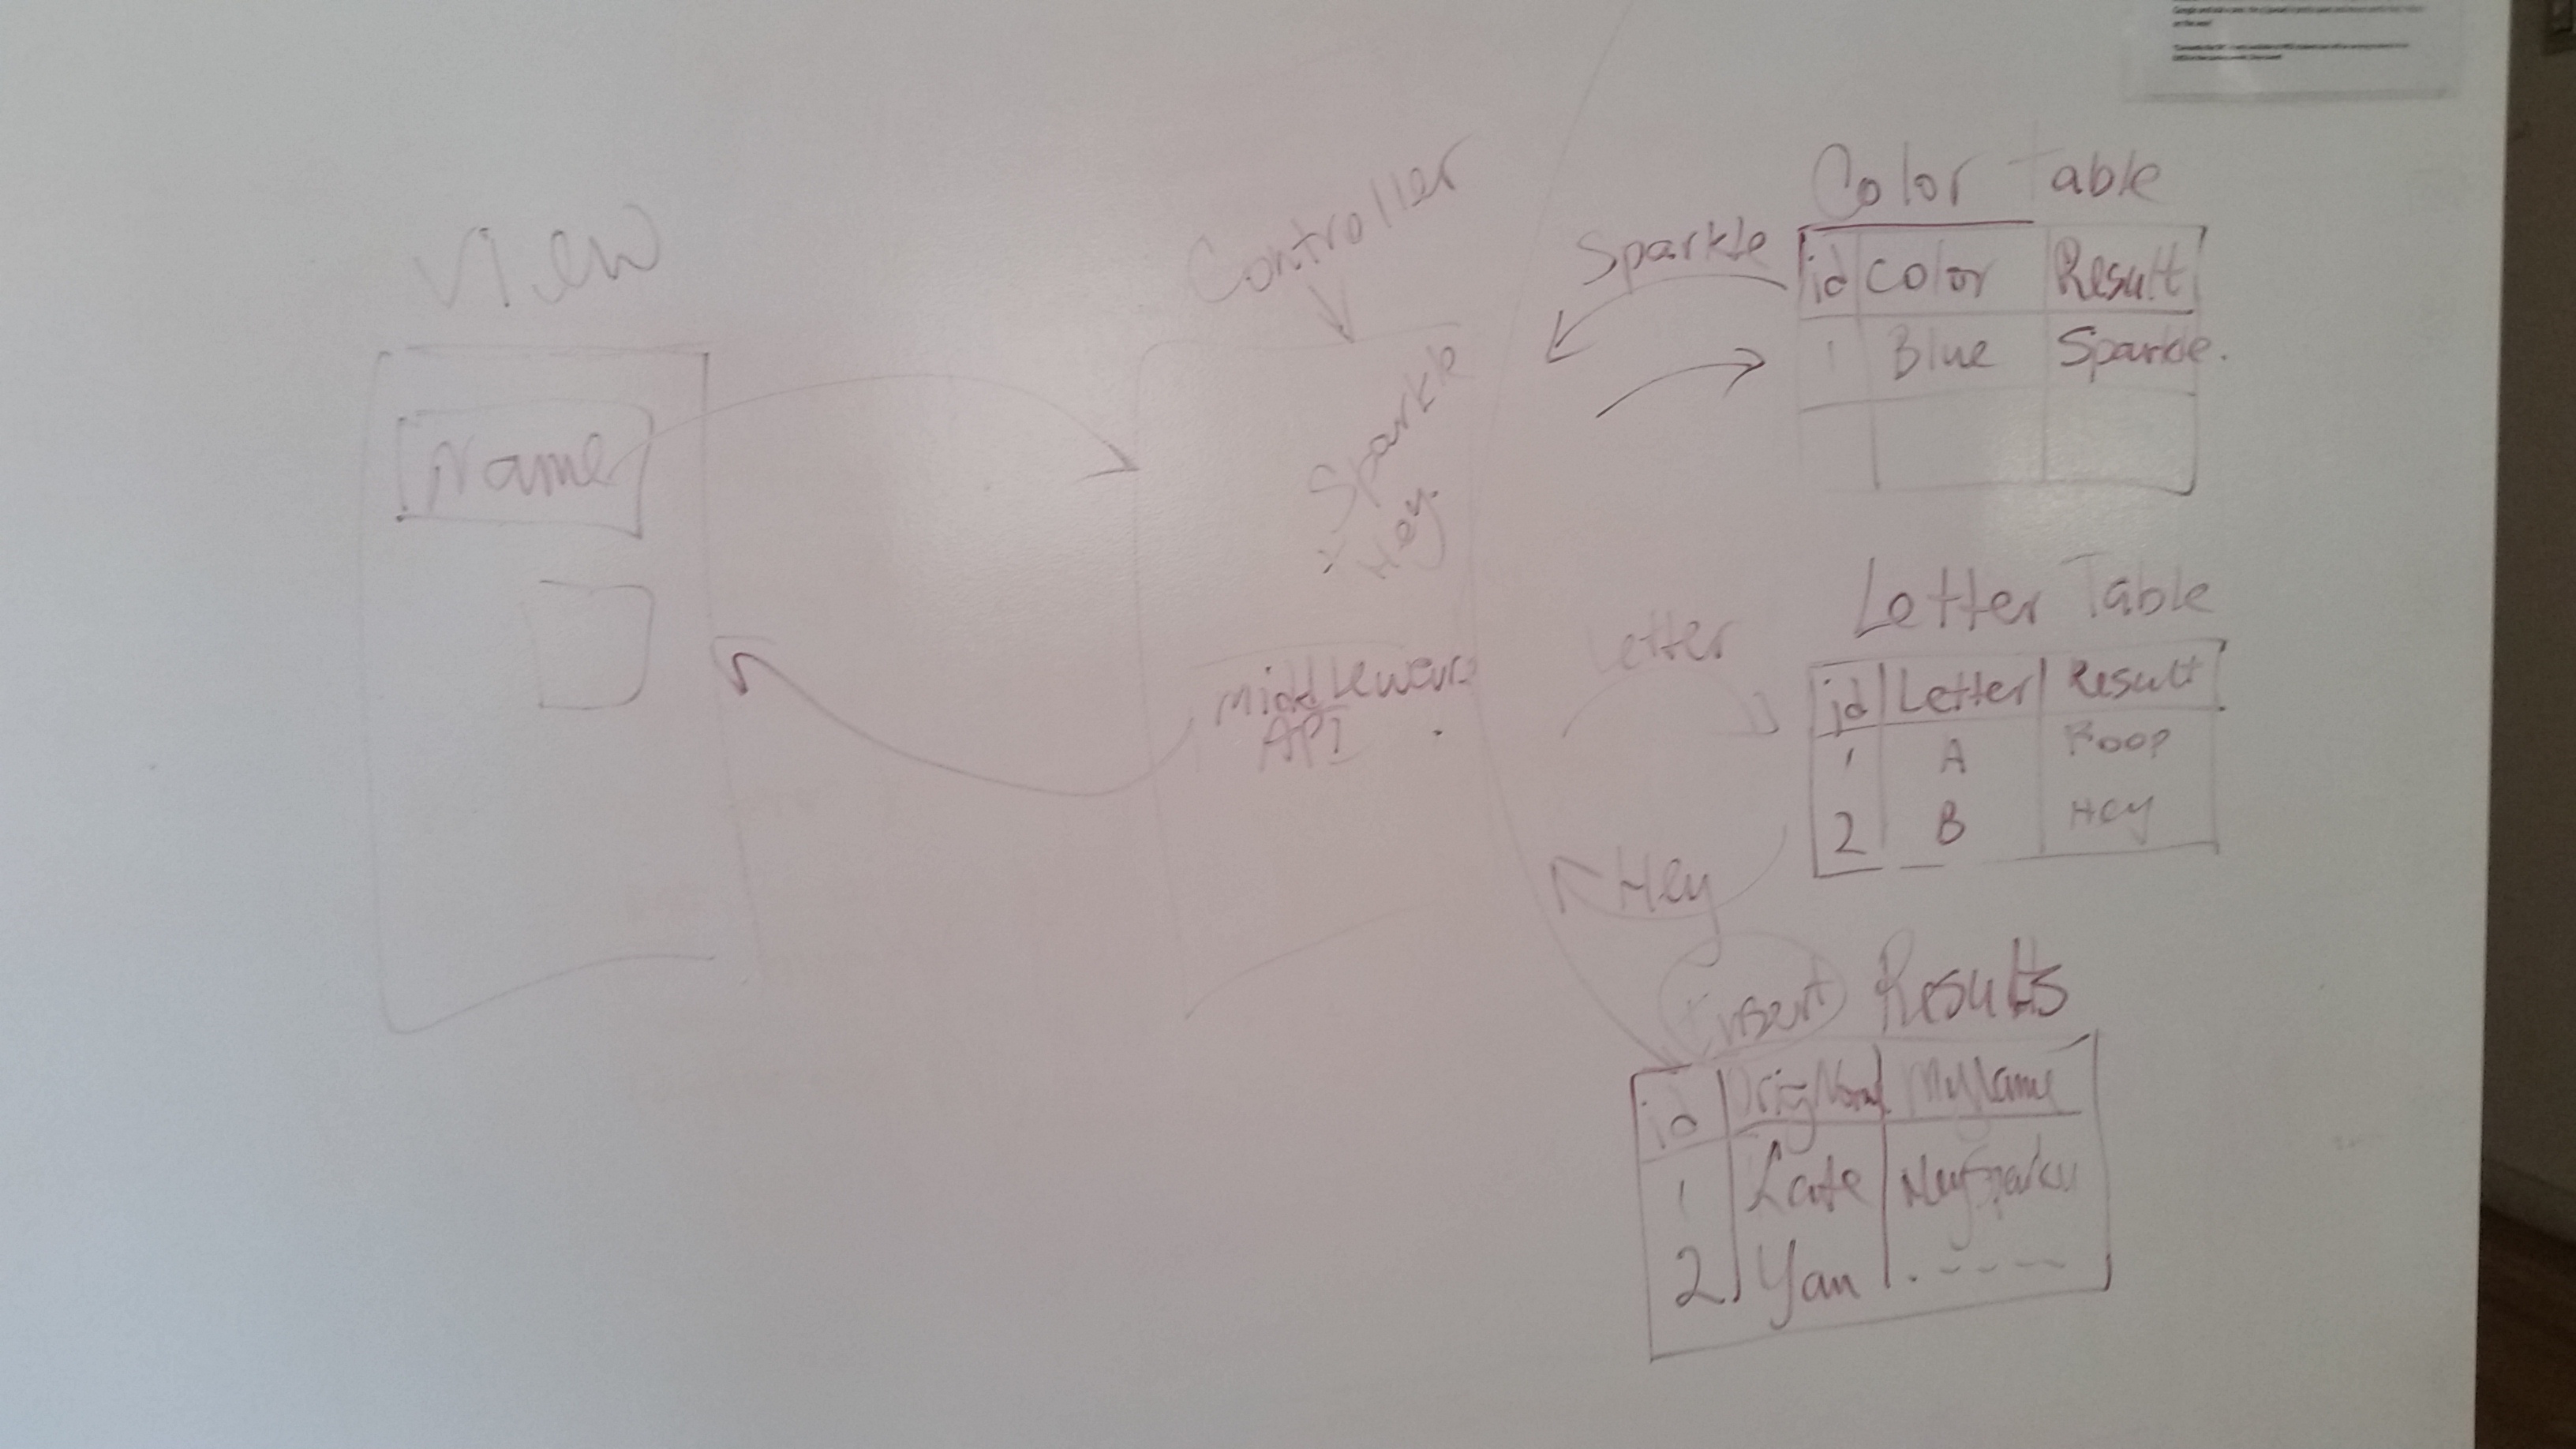 View
Name
Controller
Sparkle
+ Hey.
Middleware
API
Sparkle
Color Table
id Color Result
1 Blue Sparkle.
Letter
Letter Table
id Letter Result
1 A Poop
2 B Hey
Hey
Insert Results
id OrigName MyName
1 Cate
2 Yan . - - - -